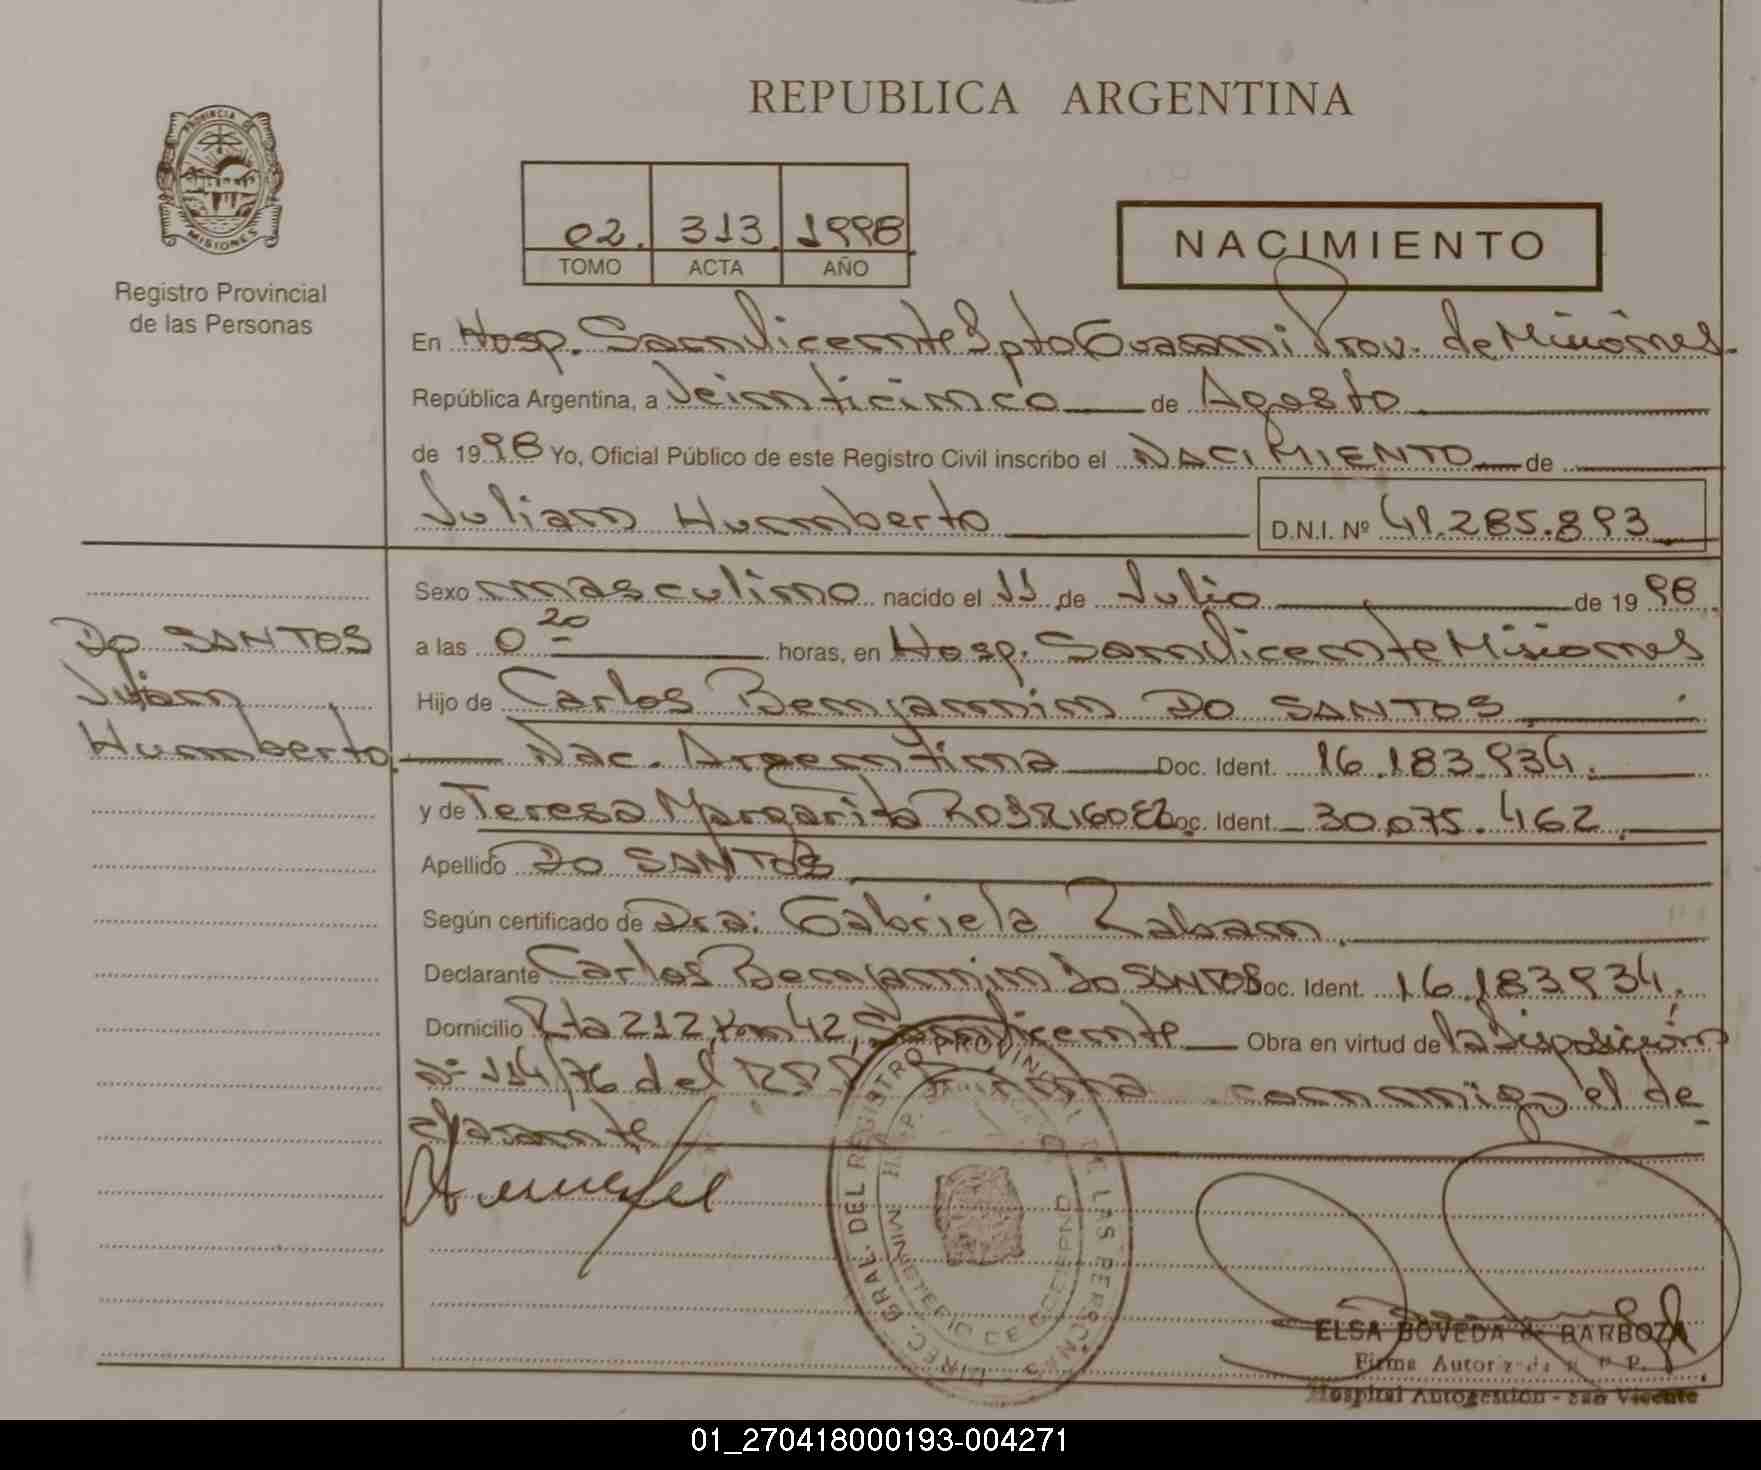 PROVINCIA DE
MISIONES
Registro Provincial
de las Personas
REPUBLICA ARGENTINA
02. 313. 1998
TOMO ACTA AÑO
NACIMIENTO
En Hosp. San Vicente Dpto Guarani Prov. de Misiones.
República Argentina, a Veinticinco de Agosto
de 1998 Yo, Oficial Público de este Registro Civil inscribo el NACIMIENTO de
Julian Humberto D.N.I. Nº 41.285.893
Sexo masculino nacido el 11 de Julio de 1998.
DO SANTOS
Julian
Humberto.
a las 0 20 horas, en Hosp. San Vicente Misiones
Hijo de Carlos Benjamin DO SANTOS
Nac. Argentina Doc. Ident. 16.183.934.
y de Teresa Margarita RODRIGUEZ Doc. Ident. 30.075.462.
Apellido DO SANTOS
Según certificado de Dra: Gabriela Raban.
Declarante Carlos Benjamin DO SANTOS Doc. Ident. 16.183.934.
Domicilio Rta 212, Km 42, San Vicente Obra en virtud de la Disposición
Nº 114/76 del R.P.P. Firma conmigo el de
clarante
DIREC. GRAL. DEL REGISTRO PROVINCIAL DE LAS PERSONAS
MINISTERIO DE GOBIERNO
ELSA BOVEDA de BARBOZA
Firma Autorizada R. P. P.
Hospital Autogestión - San Vicente
01_270418000193-004271